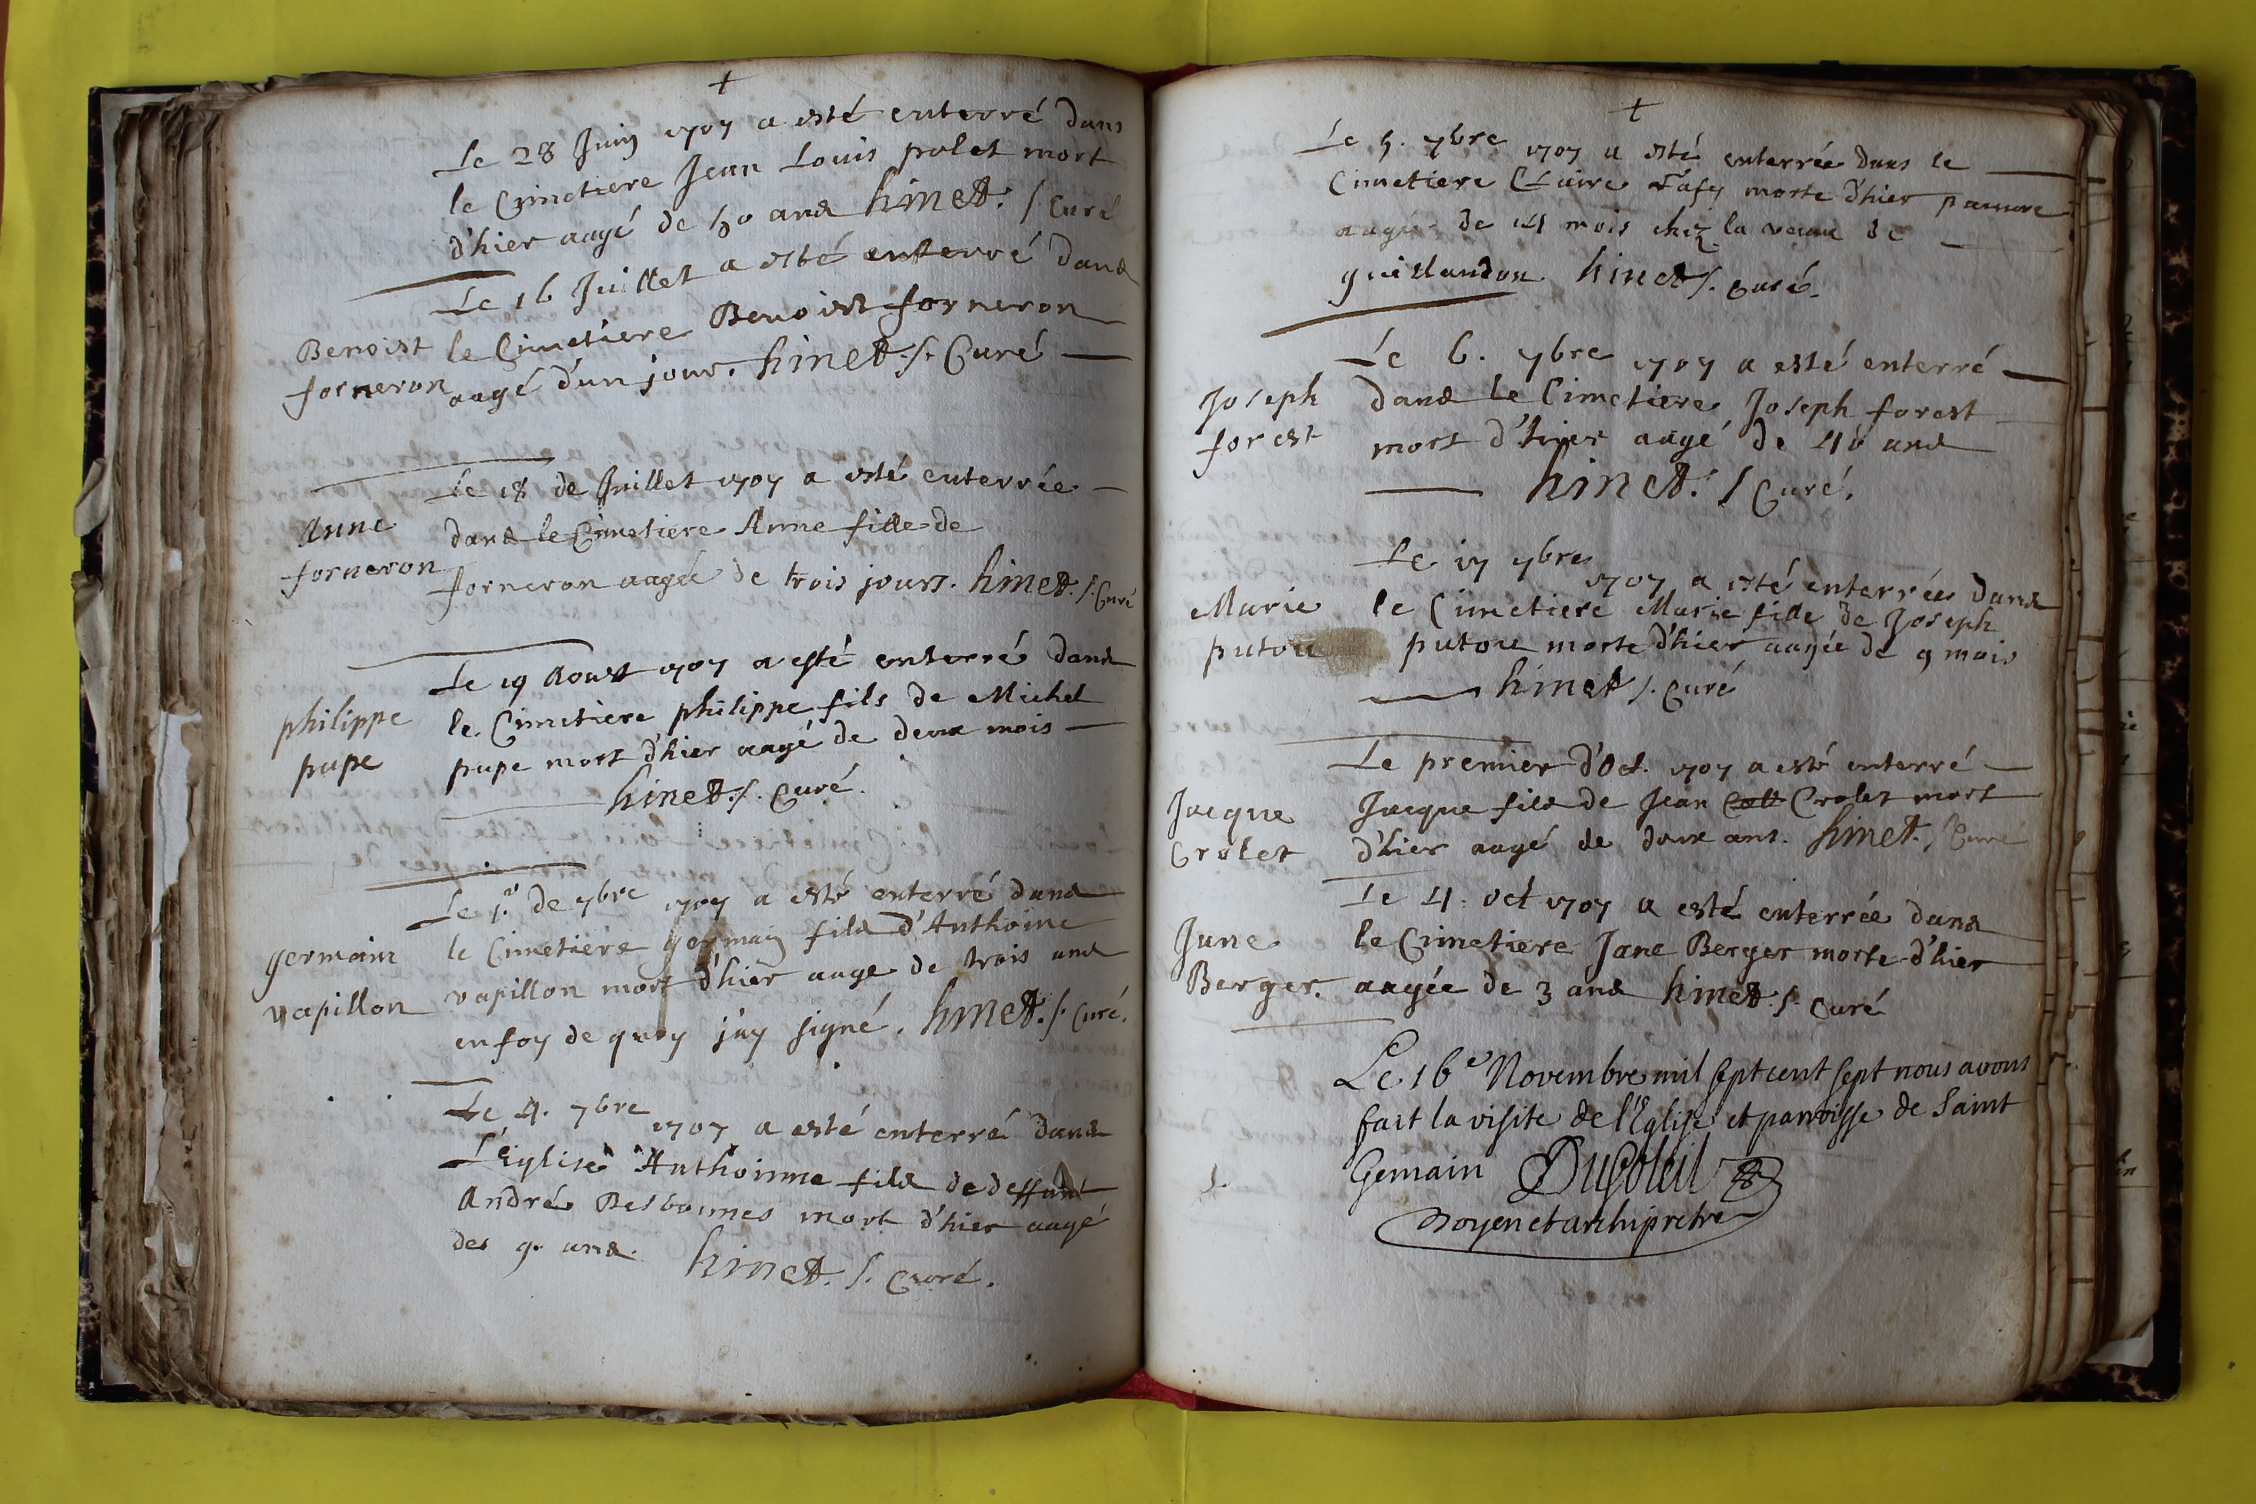 +
Le 28 Juin 1707 a esté enterré dans
le Cimetiere Jean Louis polet mort
d'hier aagé de 50 ans hinet. /. Curé
Le 16 Juillet a esté enterré dans
Benoist forneron
le Cimetiere Benoist forneron
aagé d'un jour. hinet. /. Curé
Anne forneron
Le 18 de Juillet 1707 a esté enterrée
dans le Cimetiere Anne fille de
forneron aagée de trois jours. hinet. /. Curé
philippe pupe
Le 19 Aoust 1707 a esté enterré dans
le Cimetiere philippe fils de Michel
pupe mort d'hier aagé de deux mois
hinet. /. Curé.
germain vapillon
Le 1r. de 7bre 1707 a esté enterré dans
le Cimetiere germain fils d'Anthoine
vapillon mort d'hier aage de trois ans
en foy de quoy j'ay signé. hinet. /. Curé.
Le 4. 7bre 1707 a esté enterré dans
L'Eglise Anthoinne fils de deffunt
André Desboumes mort d'hier aagé
des 9. ans. hinet. /. Curé.
+
Le 5. 7bre 1707 a esté enterrée dans le
Cimetiere Claire morte d'hier pauvre
aagée de 14 mois chez la veuve de
guillandon. hinet /. Curé.
Joseph forest
Le 6. 7bre 1707 a esté enterré
dans le Cimetiere Joseph forest
mort d'hier aagé de 40 ans
hinet. / Curé.
Marie putou
Le 17 7bre 1707 a esté enterrée dans
le Cimetiere Marie fille de Joseph
putou morte d'hier aagée de 9 mois
hinet /. Curé
Jacque Crolet
Le premier d'Oct. 1707 a esté enterré
Jacque fils de Jean Crolet mort
d'hier aagé de deux ans. hinet. / Curé
Jane Berger.
Le 4. Oct 1707 a esté enterrée dans
le Cimetiere Jane Berger morte d'hier
aagée de 3 ans hinet. /. Curé
Le 16e Novembre mil sept cent sept nous avons
fait la visite de l'Eglise et parroisse de Saint
Gemain Dusoleil
Doyen et archipretre